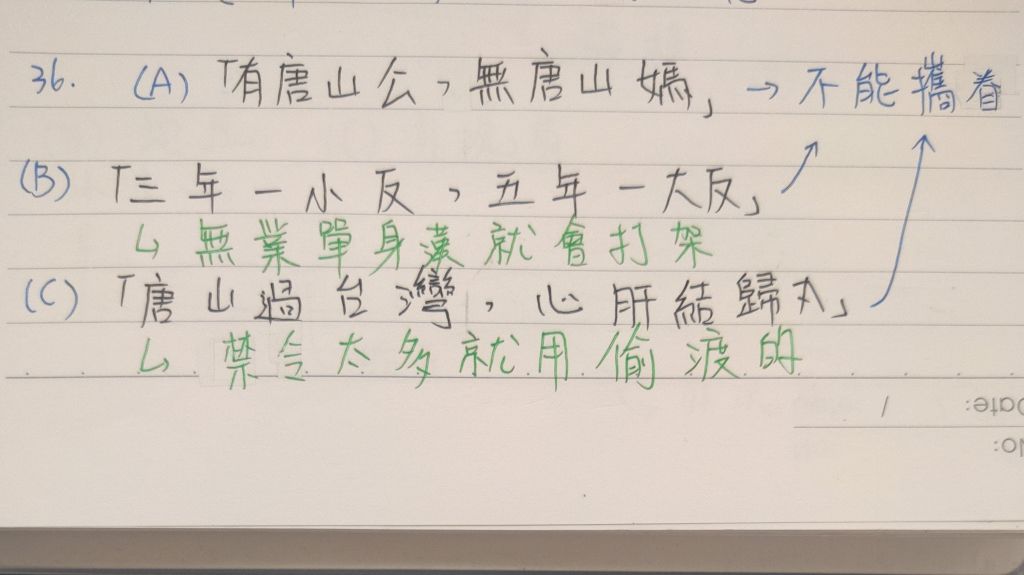 36. (A)「有唐山公，無唐山媽」→ 不能攜眷
(B)「三年一小反，五年一大反」
↳ 無業單身漢就會打架
(C)「唐山過台灣，心肝結歸丸」
↳ 禁令太多就用偷渡的
Date: /
No: